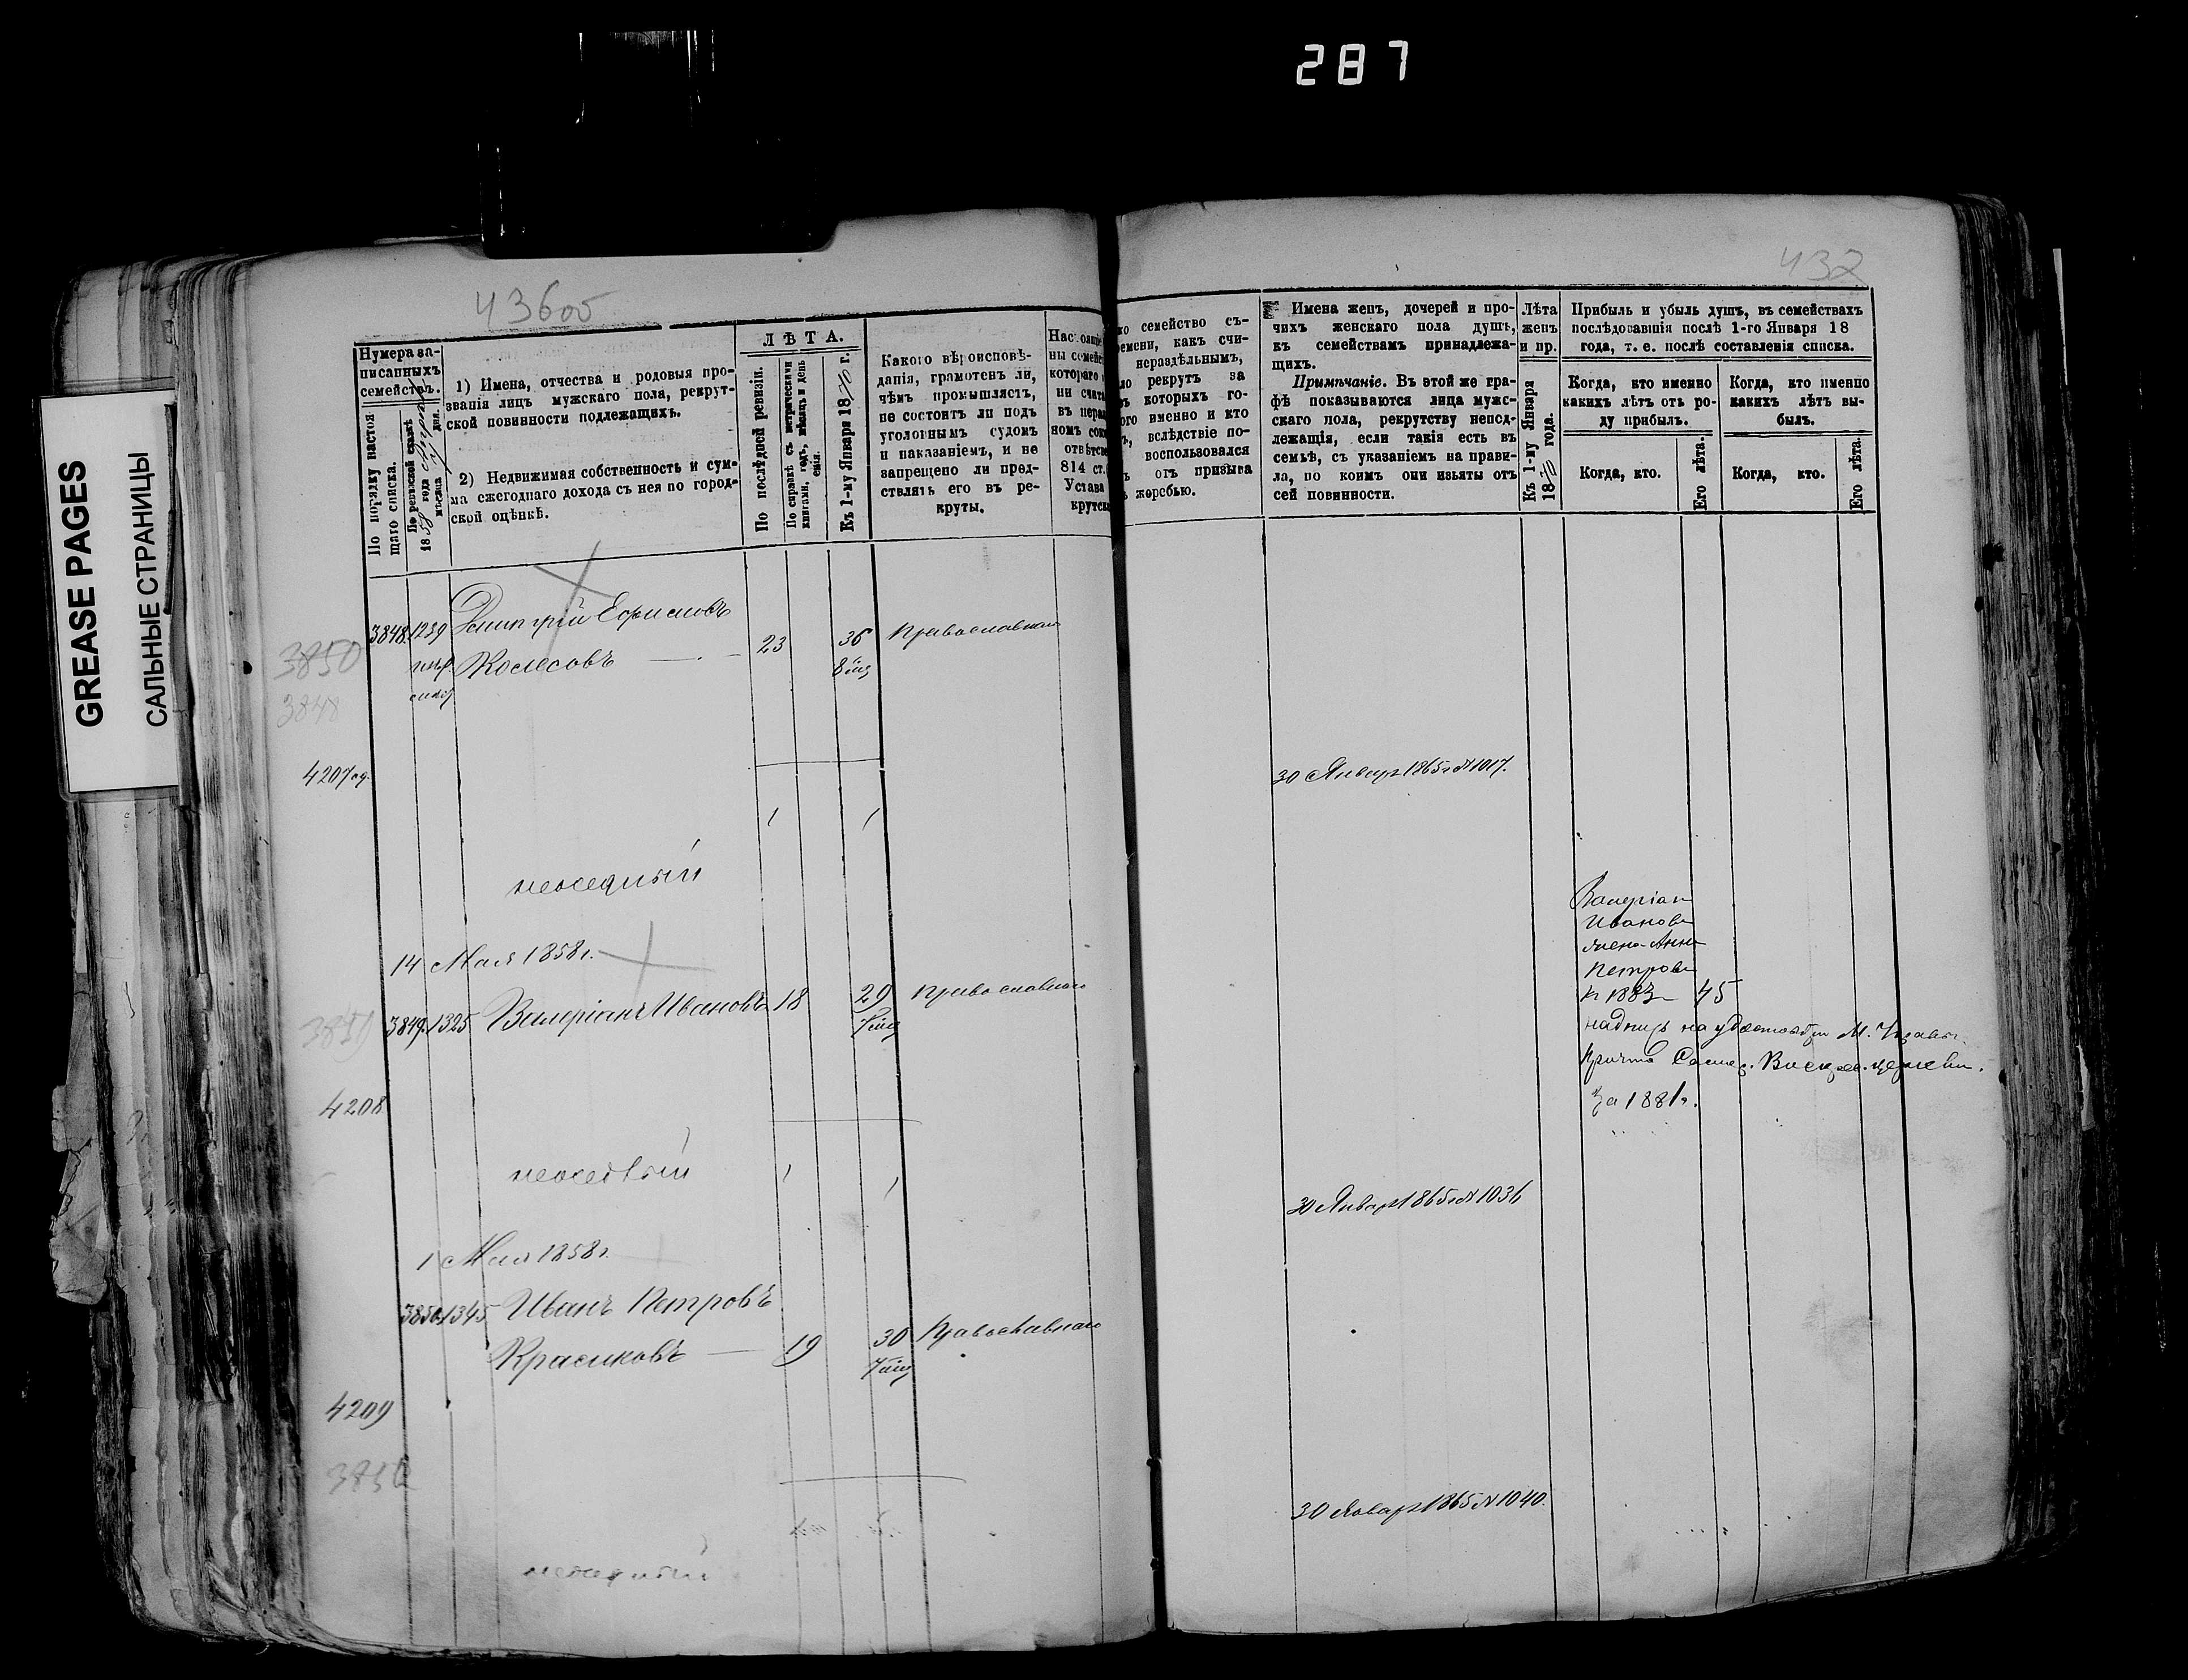 287
GREASE PAGES
САЛЬНЫЕ СТРАНИЦЫ
436об
Нумера за-
писанныхъ
семействъ.
По порядку настоя
щаго списка.
По ревизской сказкѣ
1858 года
мѣсяца дня.
1) Имена, отчества и родовыя про-
званія лицъ мужскаго пола, рекрут-
ской повинности подлежащихъ.
2) Недвижимая собственность и сум-
ма ежегоднаго дохода съ нея по город-
ской оцѣнкѣ.
ЛѢТА.
По послѣдней ревизіи.
По справкѣ съ метрическими
книгами, годъ, мѣсяцъ и день
Къ 1-му Января 1870 г.
Какого вѣроисповѣ-
данія, грамотенъ ли,
чѣмъ промышляетъ,
не состоитъ ли подъ
уголовнымъ судомъ
и наказаніемъ, и не
запрещено ли пред-
ствлять его въ ре-
круты.
Настоящіе
ны семейс
котораго
ни счита
въ нераз
номъ сок
отвѣтств
814 ст.
Устава
крутск
3848. 1239 Дмитрій Ефимовъ
3850 Колесовъ — 23 36 Православнаго
8 мц
3848
4207
1 1
неоседлый
14 Мая 1858 г.
3849. 1325 Валеріанъ Ивановъ 18 29 Православнаго
7 мц
3851
4208
неоседлый 1 1
1 Мая 1858 г.
3850. 1345 Иванъ Петровъ
Красиковъ — 19 30 Православнаго
7 мц
4209
3852
неоседлый
432
ко семейство съ-
ремени, какъ счи-
нераздѣльнымъ,
ло рекрутъ за
въ которыхъ го-
ого именно и кто
ъ, вслѣдствіе по-
воспользовался
ъ отъ призыва
ъ жеребью.
Имена женъ, дочерей и про-
чихъ женскаго пола душъ,
къ семействамъ принадлежа-
щихъ.
Примѣчаніе. Въ этой же гра-
фѣ показываются лица мужс-
скаго пола, рекрутству непод-
лежащія, если такія есть въ
семьѣ, съ указаніемъ на прави-
ла, по коимъ они изъяты отъ
сей повинности.
Лѣта
женъ
и пр.
Къ 1-му Января
1870 года.
Прибыль и убыль душъ, въ семействахъ
послѣдовавшія послѣ 1-го Января 18
года, т. е. послѣ составленія списка.
Когда, кто именно
какихъ лѣтъ отъ ро-
ду прибылъ.
Когда, кто именно
какихъ лѣтъ вы-
былъ.
Когда, кто.
Его лѣта.
Когда, кто.
Его лѣта.
30 Января 1865 г № 1017.
Валеріан
Иванова
жена Анна
Петрова
к 1883 — 45
надпись на
Причта Воскрес. церкви.
За 1881 г.
30 Января 1865 г № 1036
30 Января 1865 № 1040.